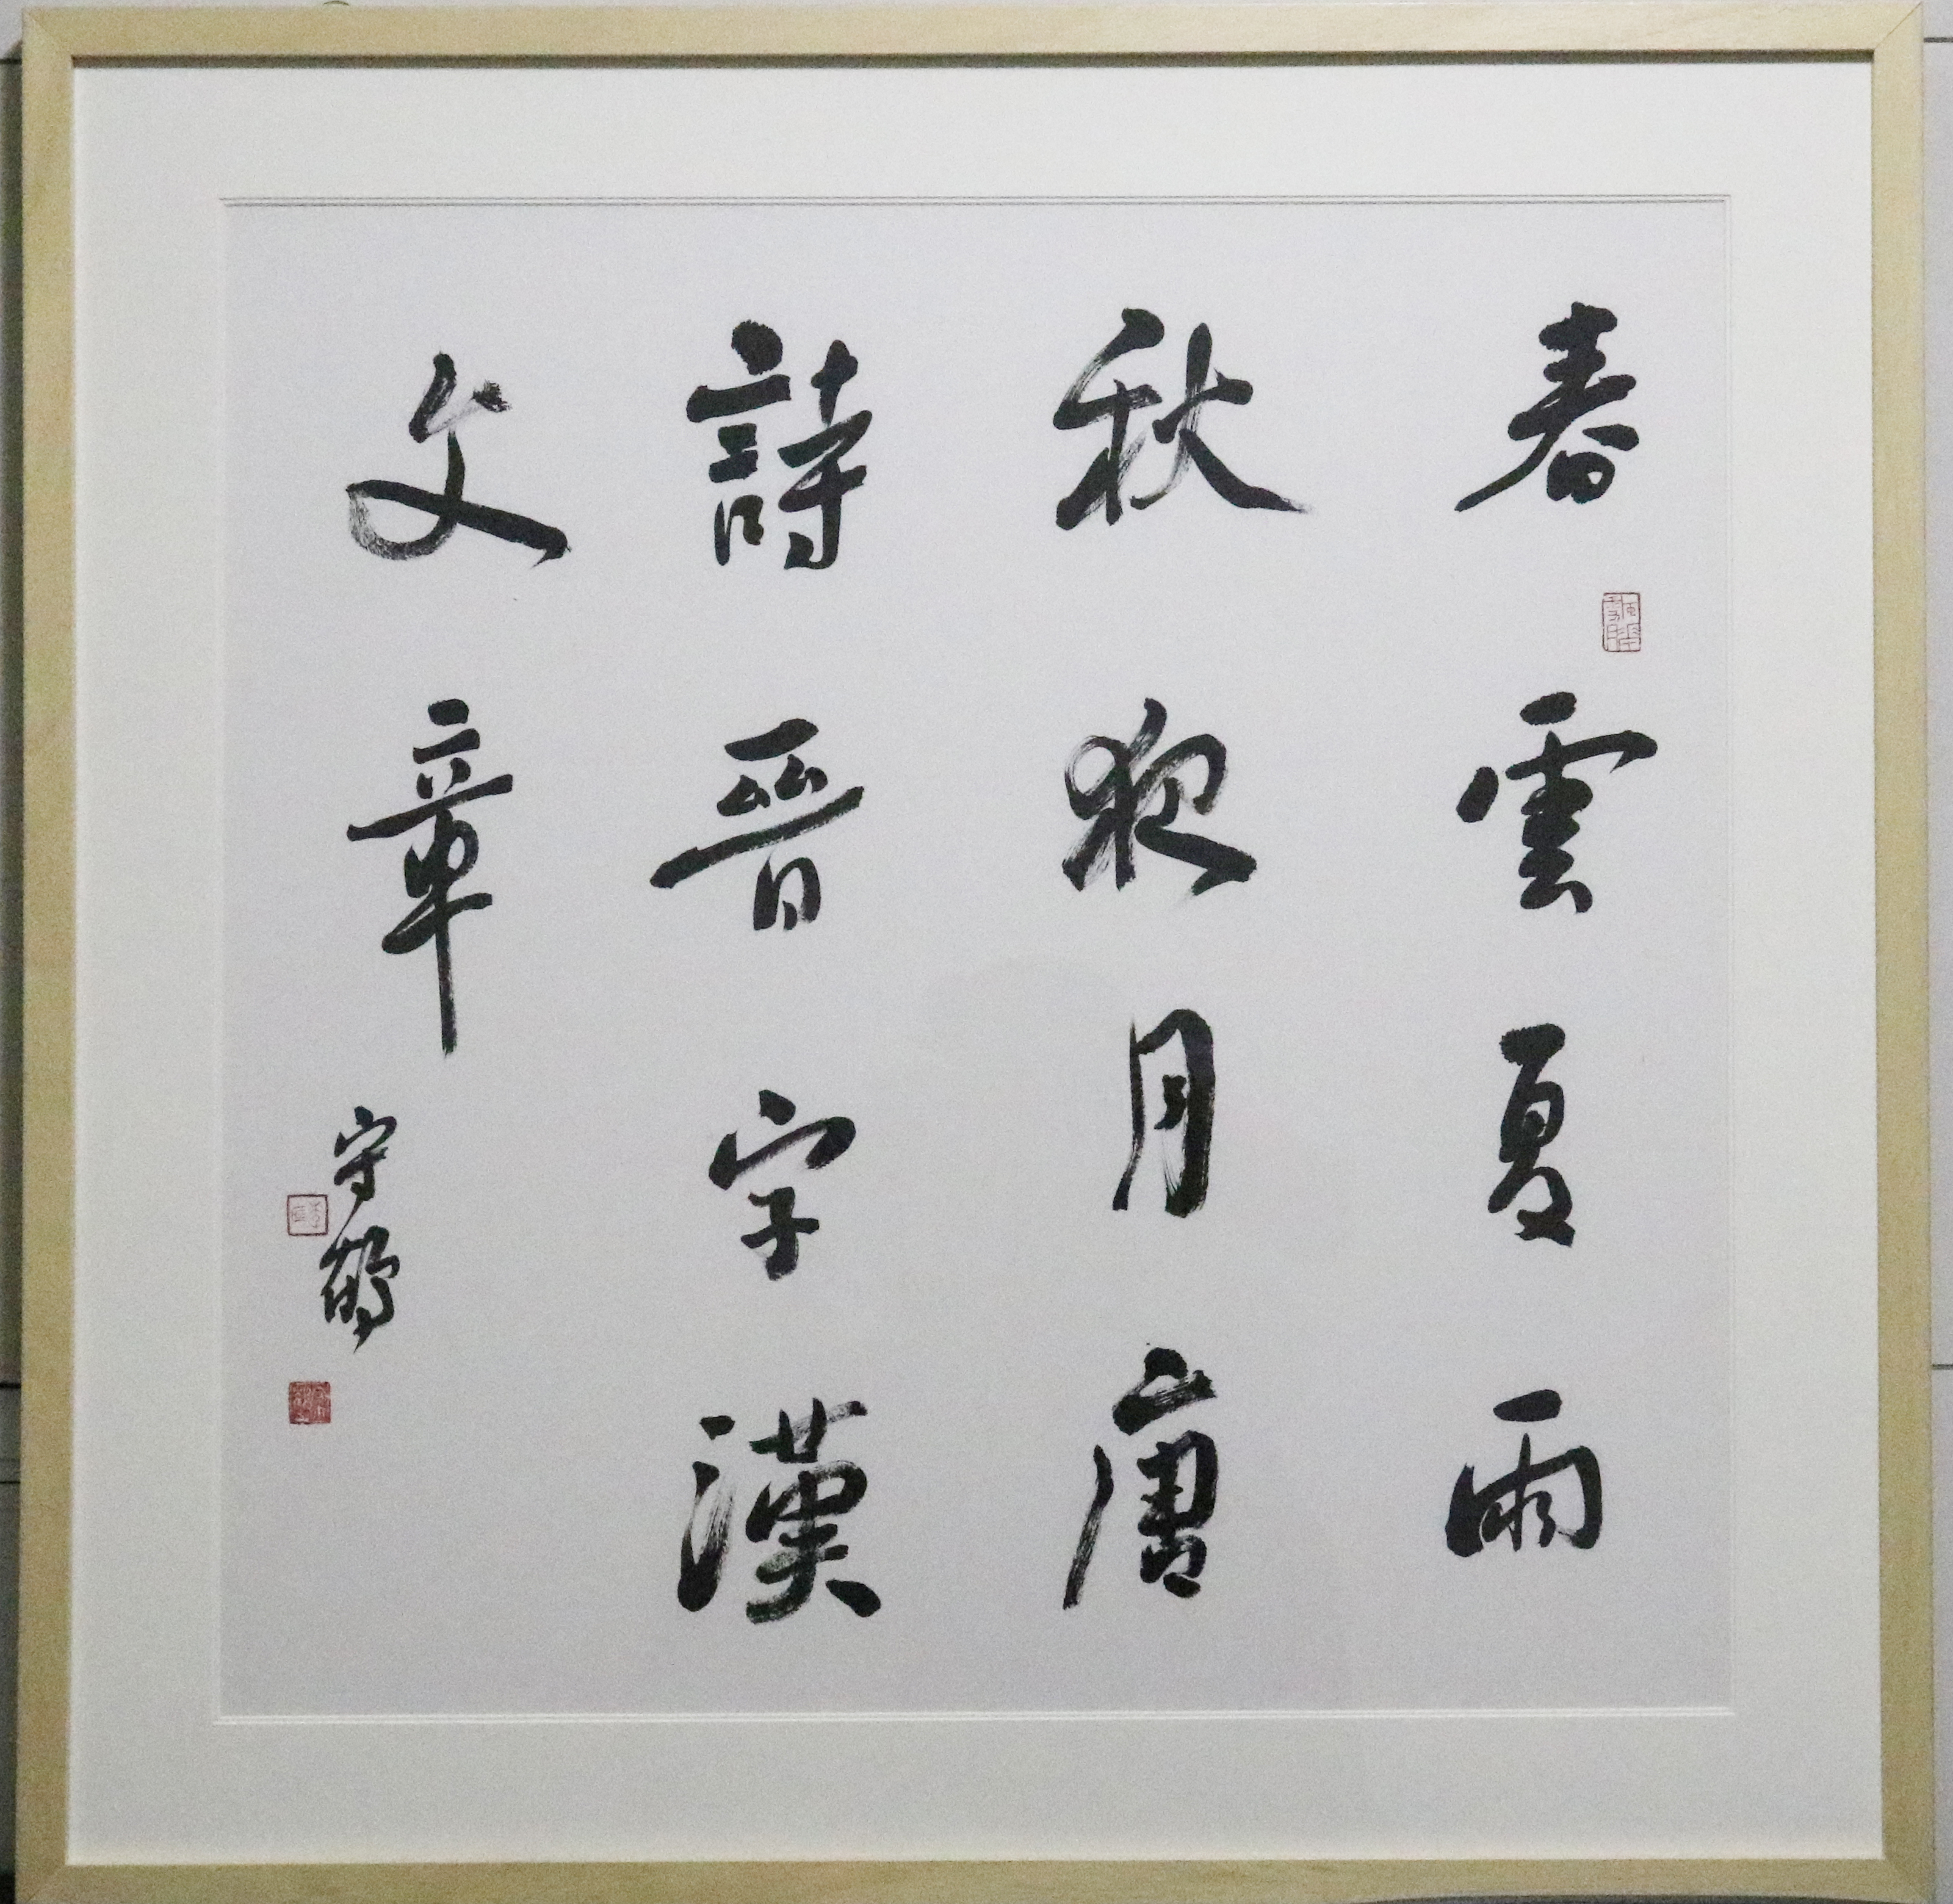 春雲夏雨
秋夜月唐
詩晉字漢
文章
守鶴